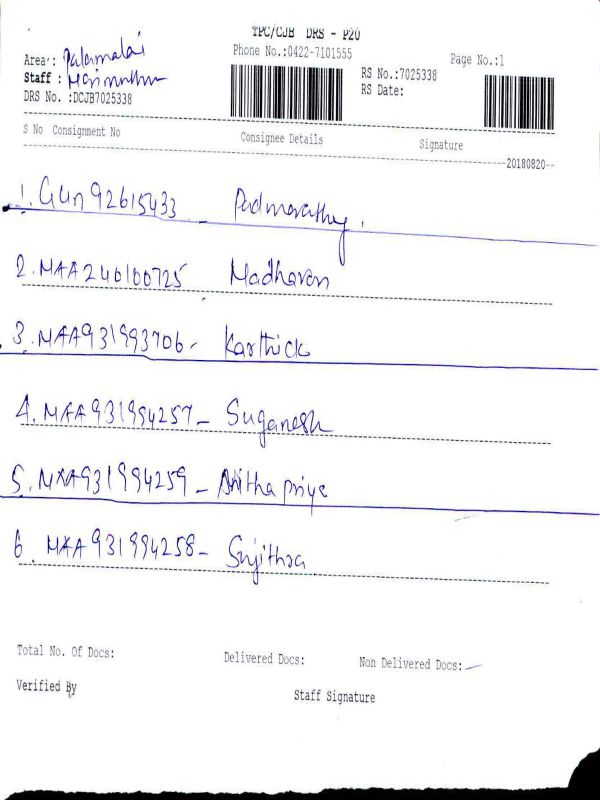 TPC/CJB DRS - P20
Phone No.:0422-7101555
Page No.:1
Area : Palamalai
Staff : Marimuthu
RS No.:7025338
DRS No. :DCJB7025338
RS Date:
S No Consignment No Consignee Details Signature
20180820--
1. GUn92615433 - Padmavathy.
2. MAA240100725 Madhavan
3. MAA931993706- Karthick
4. MAA931994257- Suganesh
5. MAA931994259- Anitha priya
6. MAA931994258- Srijithra
Total No. Of Docs: Delivered Docs: Non Delivered Docs:
Verified By Staff Signature